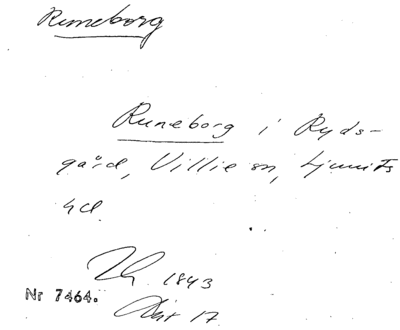 Runeborg
Runeborg i Ryds-
gård, Villie sn, Ljunits
hd.
1843
Nr 7464.
17